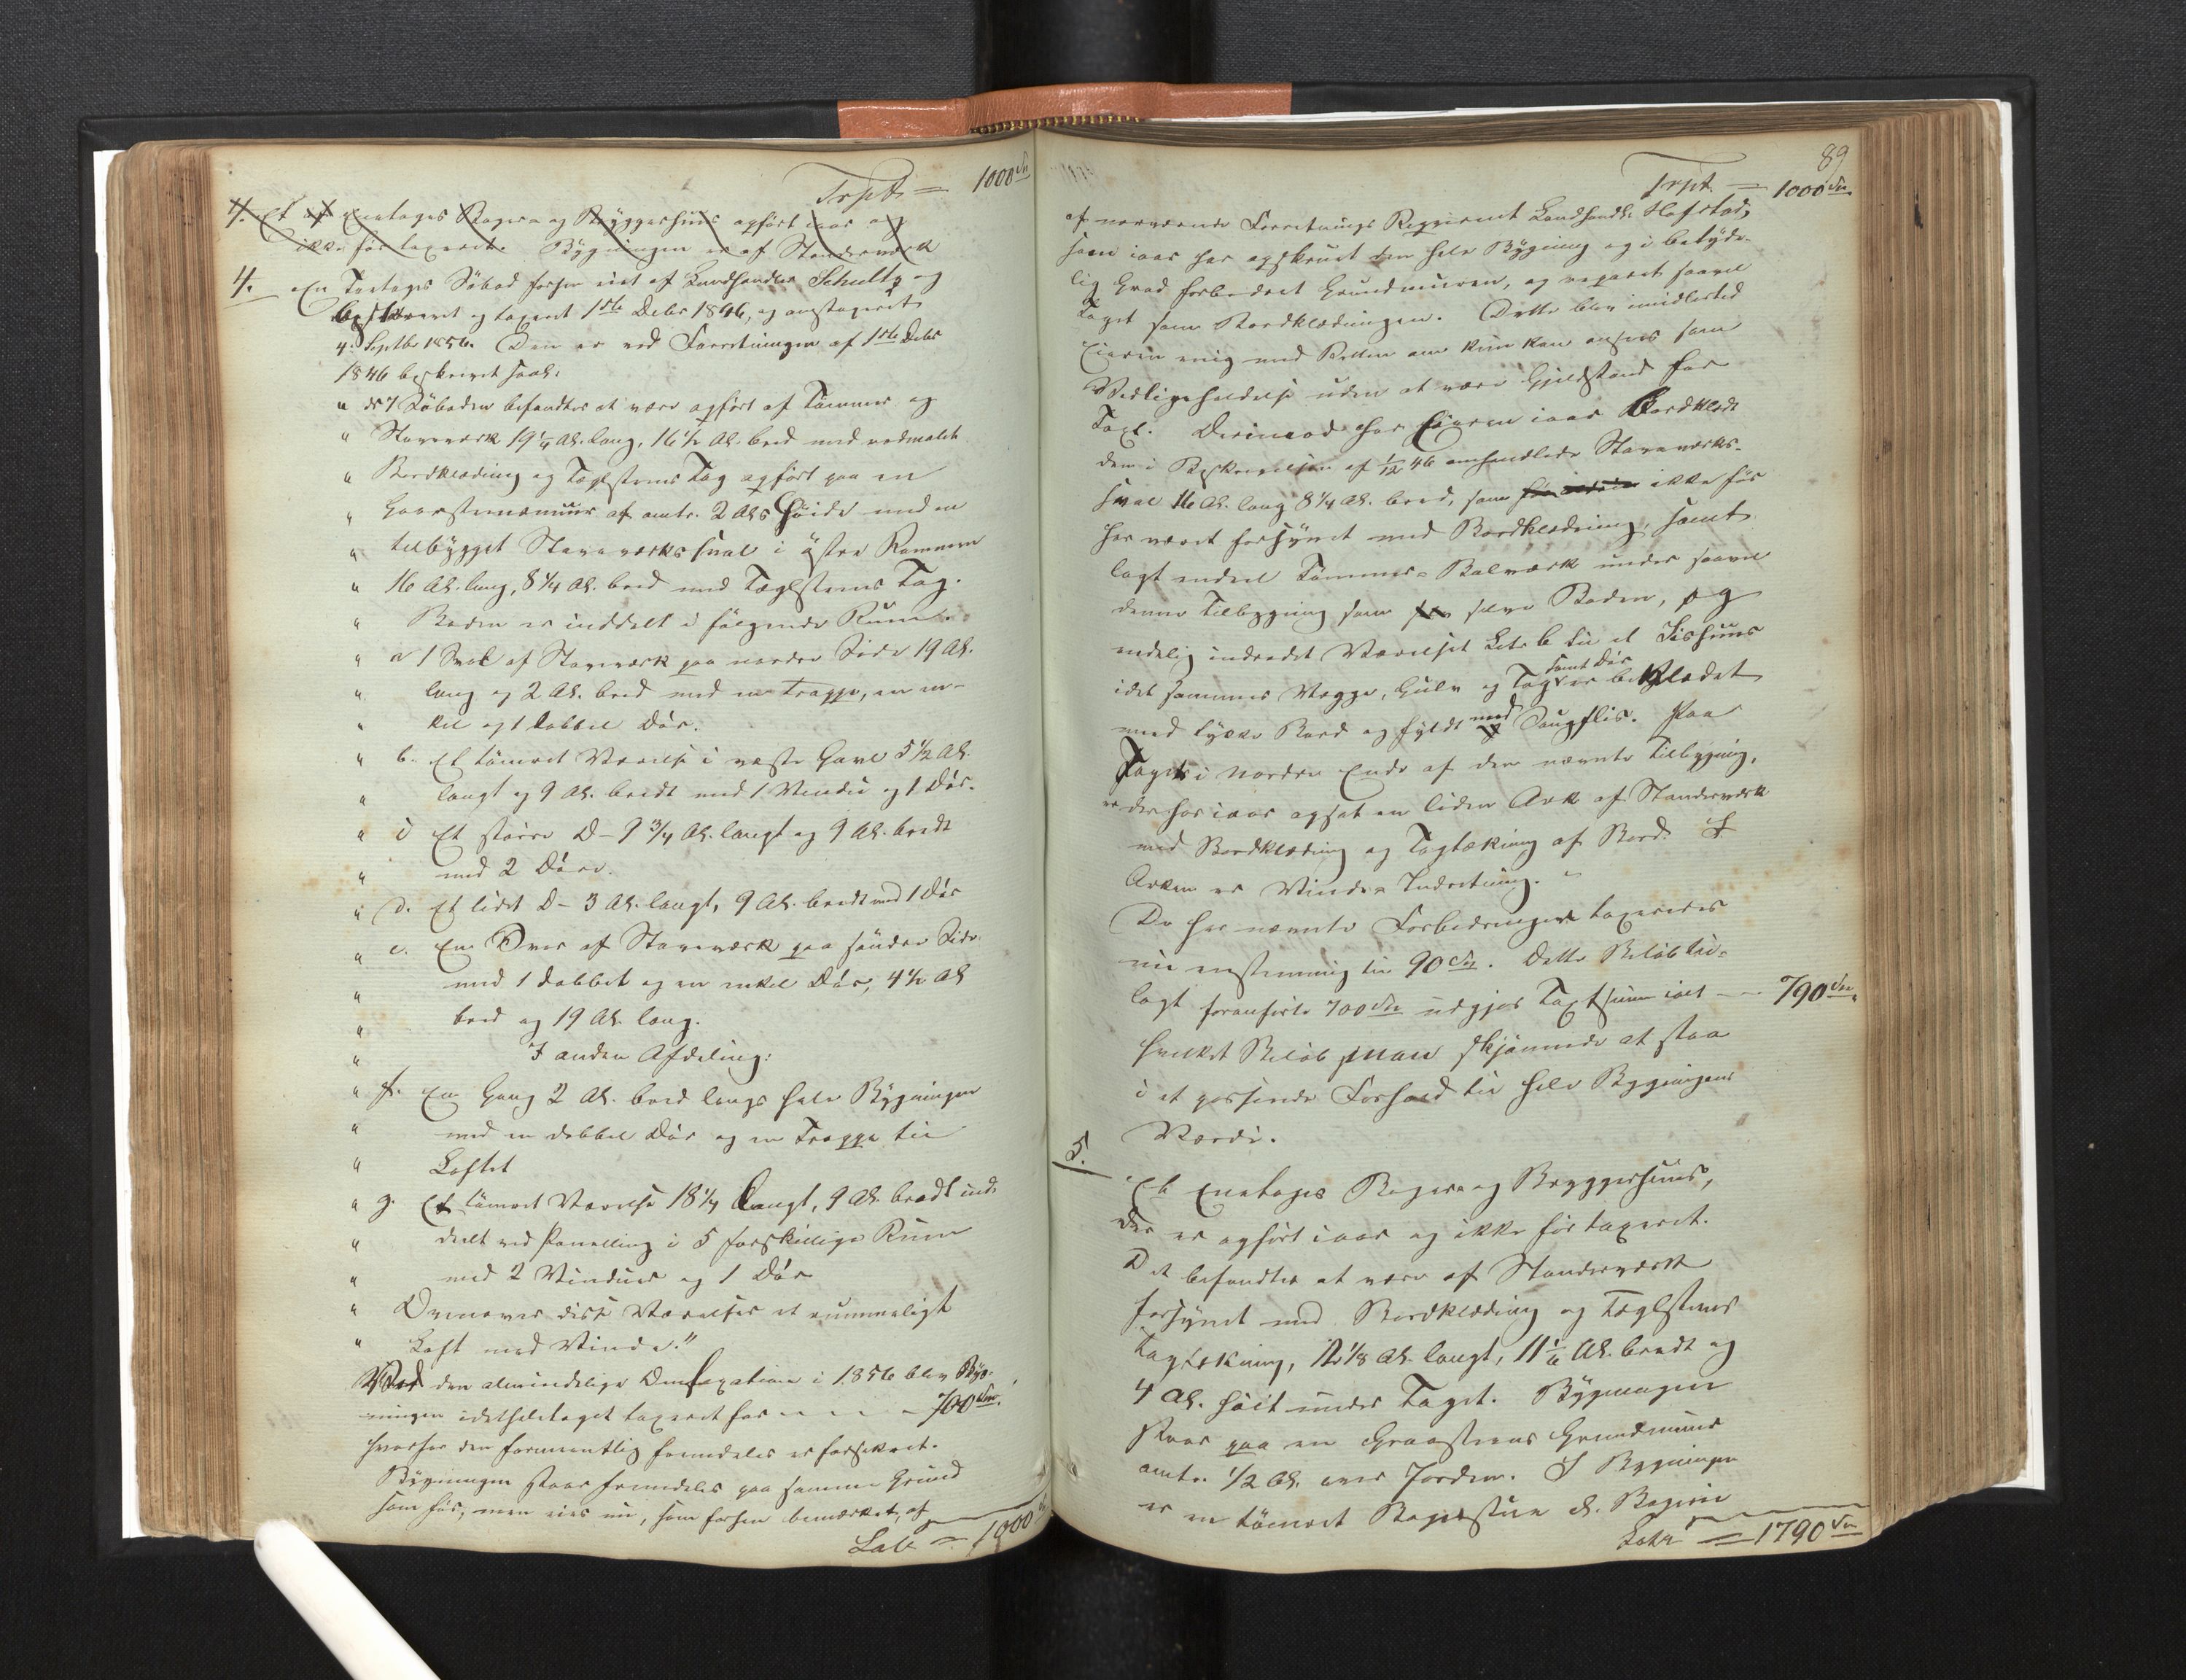 Trspt. = 1000 Sp
4. Et Eenetages Bagers og Bryggerhuus opført iaar og
ikke før taxeret. Bygningen er af Stenderværk
4. En Toetages Søbod forhen eiet af Landhandler Schultz og
beskrevet og taxeret 1ste Debr 1846, og omtaxeret
4. Septbr 1856. Den er ved Forretningen af 1ste Debr
1846 beskrevet saal:
" Søboden befandtes at være opført af Tømmer og
" Stavværk 19 1/4 Al. lang, 16 1/2 Al. bred med rødmalet
" Bordklædning og Tæglsteens Tag opført paa en
" Graasteensmuur af omtr. 2 Als Høide med en
" tilbygget Stavværkssval i østre Rammen
" 16 Al. lang, 8 1/4 Al. bred med Tæglsteens Tag.
" Boden er inddelt i følgende Rum:
" a 1 Sval af Stavværk paa nordre Side 19 Al.
" lang og 2 Al. bred med en Trappe, en en-
" kel og 1 dobbel Dør.
" b. Et tømret Værelse i vestre Gavl 5 1/2 Al.
" langt og 9 Al. bredt med 1 Vindu og 1 Dør.
" c Et større D- 9 3/4 Al. langt og 9 Al. bredt
" med 2 Døre.
" d. Et lidet D- 3 Al. langt, 9 Al. bredt med 1 Dør
" e. En Sval af Stavværk paa søndre Side
" med 1 dobbelt og en enkel Dør, 4 1/2 Al
" bred og 19 Al. lang.
" I anden Afdeling:
" f. En Gang 2 Al. bred langs hele Bygningen
" med en dobbel Dør og en Trappe til
" Loftet
" g. Et tømret Værelse 18 1/4 langt, 9 Al. bredt ind-
" deelt ved Panelling i 5 forskjellige Rum
" med 2 Vinduer og 1 Dør
" Ovenover disse Værelser et rummeligt
" Loft med Vinde."
Ved den almindelige Omtaxation i 1856 blev Byg-
ningen idetheletaget taxeret for - - - - 700 Sp.
hvorfor den formentlig fremdeles er forsikret.
Bygningen staar fremdeles paa samme Grund
som før, men eies nu, som forhen bemærket, af
Lat. = 1000
89
Trspt. = 1000 Sp.
af nærværende Forretnings Reqvirent Landhandl. Hofstad,
som iaar har opskruet den hele Bygning og i betyde-
lig Grad forbedret Grundmuren, og repareret saavel
Taget som Bordklædningen. Dette blev imidlertid
Eieren enig med Retten om kun kan ansees som
Vedligeholdelse uden at være Gjenstand for
Taxt. Derimod har Eieren iaar Bordklædt
den i Beskrivelsen af 1/12 46 omhandlede Stavværks-
sval 16 Al. lang 8 1/4 Al. bred, som ikke før
har været forsynet med Bordklædning, samt
lagt endeel Tømmer-Bolværk under saavel
denne Tilbygning som selve Boden, og
endelig indredet Værelset Litr. b til et Iishuus
idet sammes Vægge, Gulv og Tag samt Dør er beklædet
med tykke Bord og fyldt med Saugflis. Paa
Taget i nordre Ende af den nævnte Tilbygning,
er derhos iaar opsat en liden Ark af Stenderværk
med Bordklædning og Tagtækning af Bord. I
Arken er Vinde-Indretning.
De her nævnte Forbedringer taxeredes
nu eenstemmig til 90 Sp. Dette Beløb til-
lagt foranførte 700 Sp udgjør Taxtsummen ialt - 790 Sp.
hvilket Beløb man skjønnede at staa
i et passende Forhold til hele Bygningens
Værdi.
5.
Et Eenetages Bagers og Bryggerhuus,
der er opført iaar og ikke før taxeret.
Det befandtes at være af Stenderværk
forsynet med Bordklædning og Tæglsteens
Tagtækning, 12 1/8 Al. langt, 11 1/6 Al. bredt og
4 Al. høit under Taget. Bygningen
staar paa en Graasteens Grundmuur
omtr. 1/2 Al. over Jorden. I Bygningen
er en tømret Bagerstue
Latr = 1790 Sp